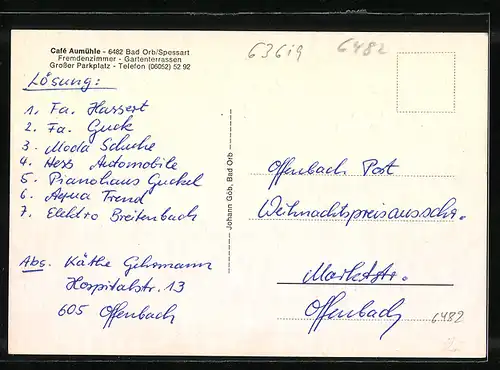 Café Aumühle - 6482 Bad Orb/Spessart
Fremdenzimmer - Gartenterrassen
Großer Parkplatz - Telefon (06052) 52 92
Lösung:
1. Fa. Hassert
2. Fa. Guck
3. Moda Schuhe
4. Hess Automobile
5. Pianohaus Guckel
6. Aqua Trend
7. Elektro Breitenbach
Abs. Käthe Gehrmann
Hospitalstr. 13
605 Offenbach
Johann Göb, Bad Orb
636i9
6482
Offenbach Post
Weihnachtspreisausschr.
Marktstr.
Offenbach
6482